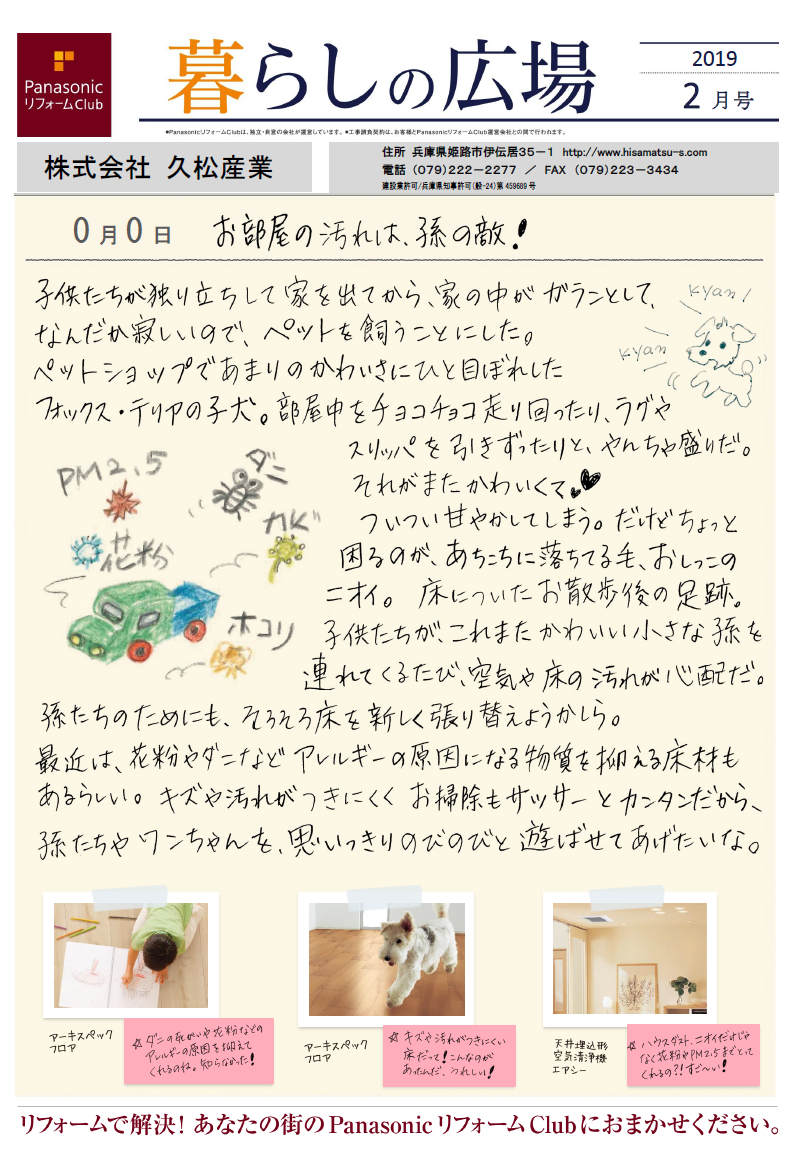 Panasonic
リフォームClub
暮らしの広場
2019
2月号
●PanasonicリフォームClubは、独立・自営の会社が運営しています。●工事請負契約は、お客様とPanasonicリフォームClub運営会社との間で行われます。
株式会社 久松産業
住所 兵庫県姫路市伊伝居35-1 http://www.hisamatsu-s.com
電話 (079)222-2277 / FAX (079)223-3434
建設業許可/兵庫県知事許可(般-24)第459689号
0月0日 お部屋の汚れは、孫の敵!
子供たちが独り立ちして家を出てから、家の中がガランとして、
なんだか寂しいので、ペットを飼うことにした。
ペットショップであまりのかわいさにひと目ぼれした
フォックス・テリアの子犬。部屋中をチョコチョコ走り回ったり、ラグや
スリッパを引きずったりと、やんちゃ盛りだ。
それがまたかわいくて♥♥
ついつい甘やかしてしまう。だけどちょっと
困るのが、あちこちに落ちてる毛、おしっこの
ニオイ。床についたお散歩後の足跡。
子供たちが、これまたかわいい小さな孫を
連れてくるたび、空気や床の汚れが心配だ。
孫たちのためにも、そろそろ床を新しく張り替えようかしら。
最近は、花粉やダニなどアレルギーの原因になる物質を抑える床材も
あるらしい。キズや汚れがつきにくくお掃除もサッサーとカンタンだから、
孫たちやワンちゃんを、思いっきりのびのびと遊ばせてあげたいな。
kyan!
kyan
PM2.5
ダニ
カビ
花粉
ホコリ
アーキスペック
フロア
☆ダニの死がいや花粉などの
アレルギーの原因を抑えて
くれるのね。知らなかった!
アーキスペック
フロア
☆キズや汚れがつきにくい
床だって!こんなのが
あったんだ、うれしい!
天井埋込形
空気清浄機
エアシー
☆ハウスダスト、ニオイだけじゃ
なく花粉やPM2.5までとって
くれるの?!すご〜い!
リフォームで解決!あなたの街のPanasonicリフォームClubにおまかせください。